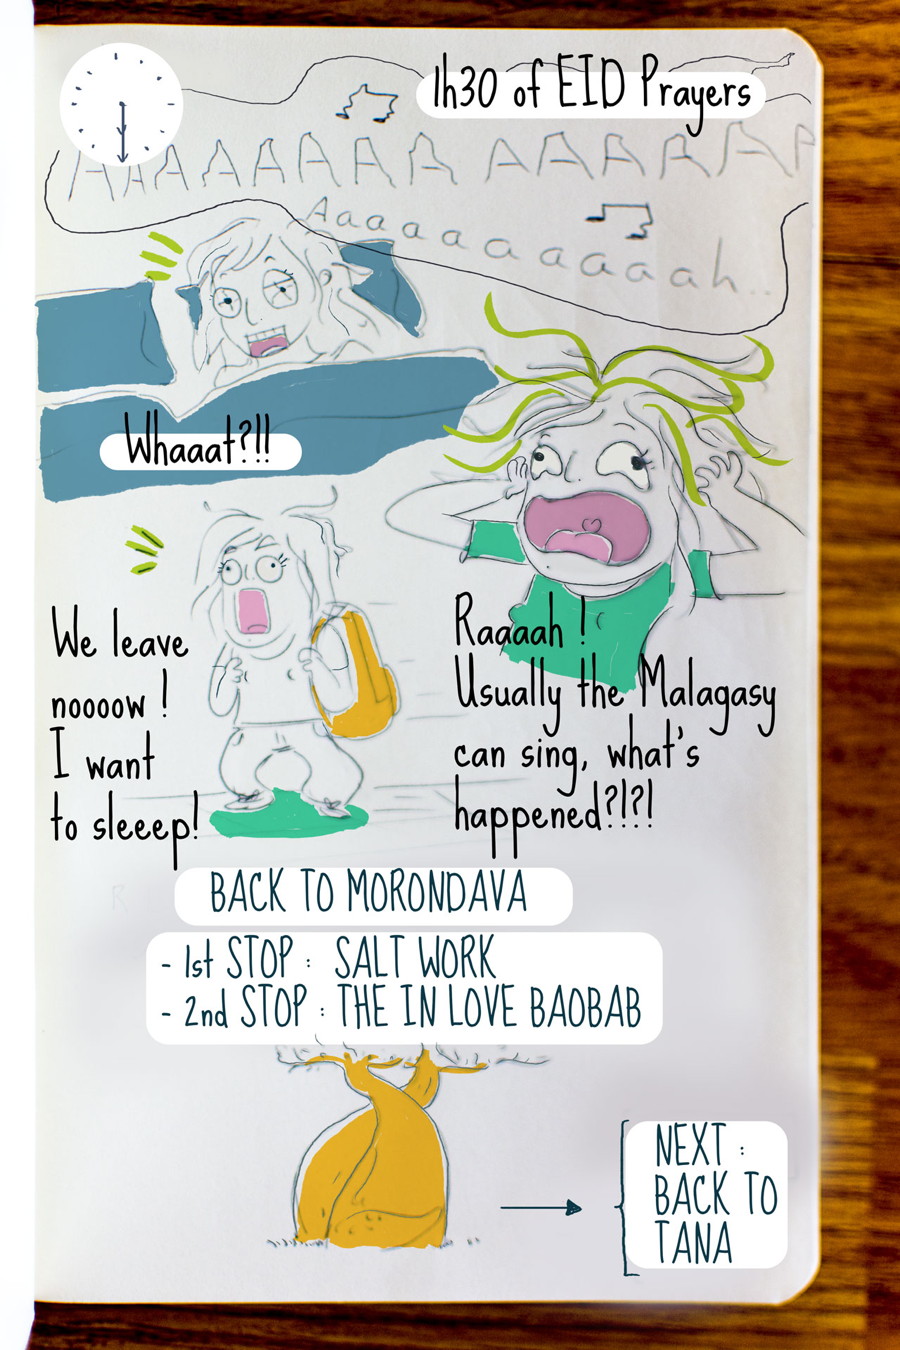 1h30 of EID Prayers
AAAAAAAA AAAAAAA
Aaaaaaaaaaah...
Whaaat?!!
We leave
noooow !
I want
to sleeep!
Raaaah !
Usually the Malagasy
can sing, what's
happened?!?!
BACK TO MORONDAVA
- 1st STOP : SALT WORK
- 2nd STOP : THE IN LOVE BAOBAB
NEXT :
BACK TO
TANA